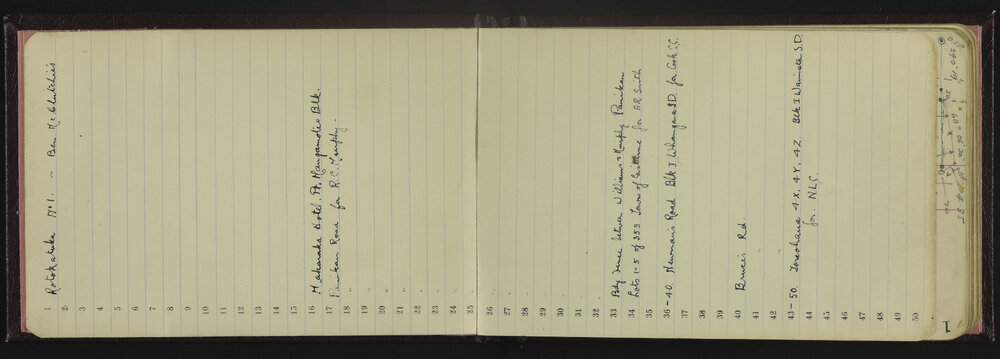 1 Rotokautuku No 1. - Ben McClutchie's
2
3
4
5
6
7
8
9
10
11
12
13
14
15
16 Makaraka Hotel. Pt. Maugamoteo Blk.
17 Panikau Road for R.C. Murphy.
18 "
19 "
20 "
21 "
22 "
23 "
24 "
25 "
26 "
27 "
28 "
29 "
30 "
31 "
32 "
33 Bdy fence between Williams & Murphy Panikau
34 Lots 1-5 of 353 Town of Gisborne for A.R. Smith
35
36-40. Newman's Road Blk I Whangara S.D. for Cook C.C.
37
38
39
40 Bruce's Rd.
41 "
42 "
43-50. 4X, 4Y, 4Z. Blk I Waimata S.D.
44 for N.L.C.
45
46
47
48
49
50
1